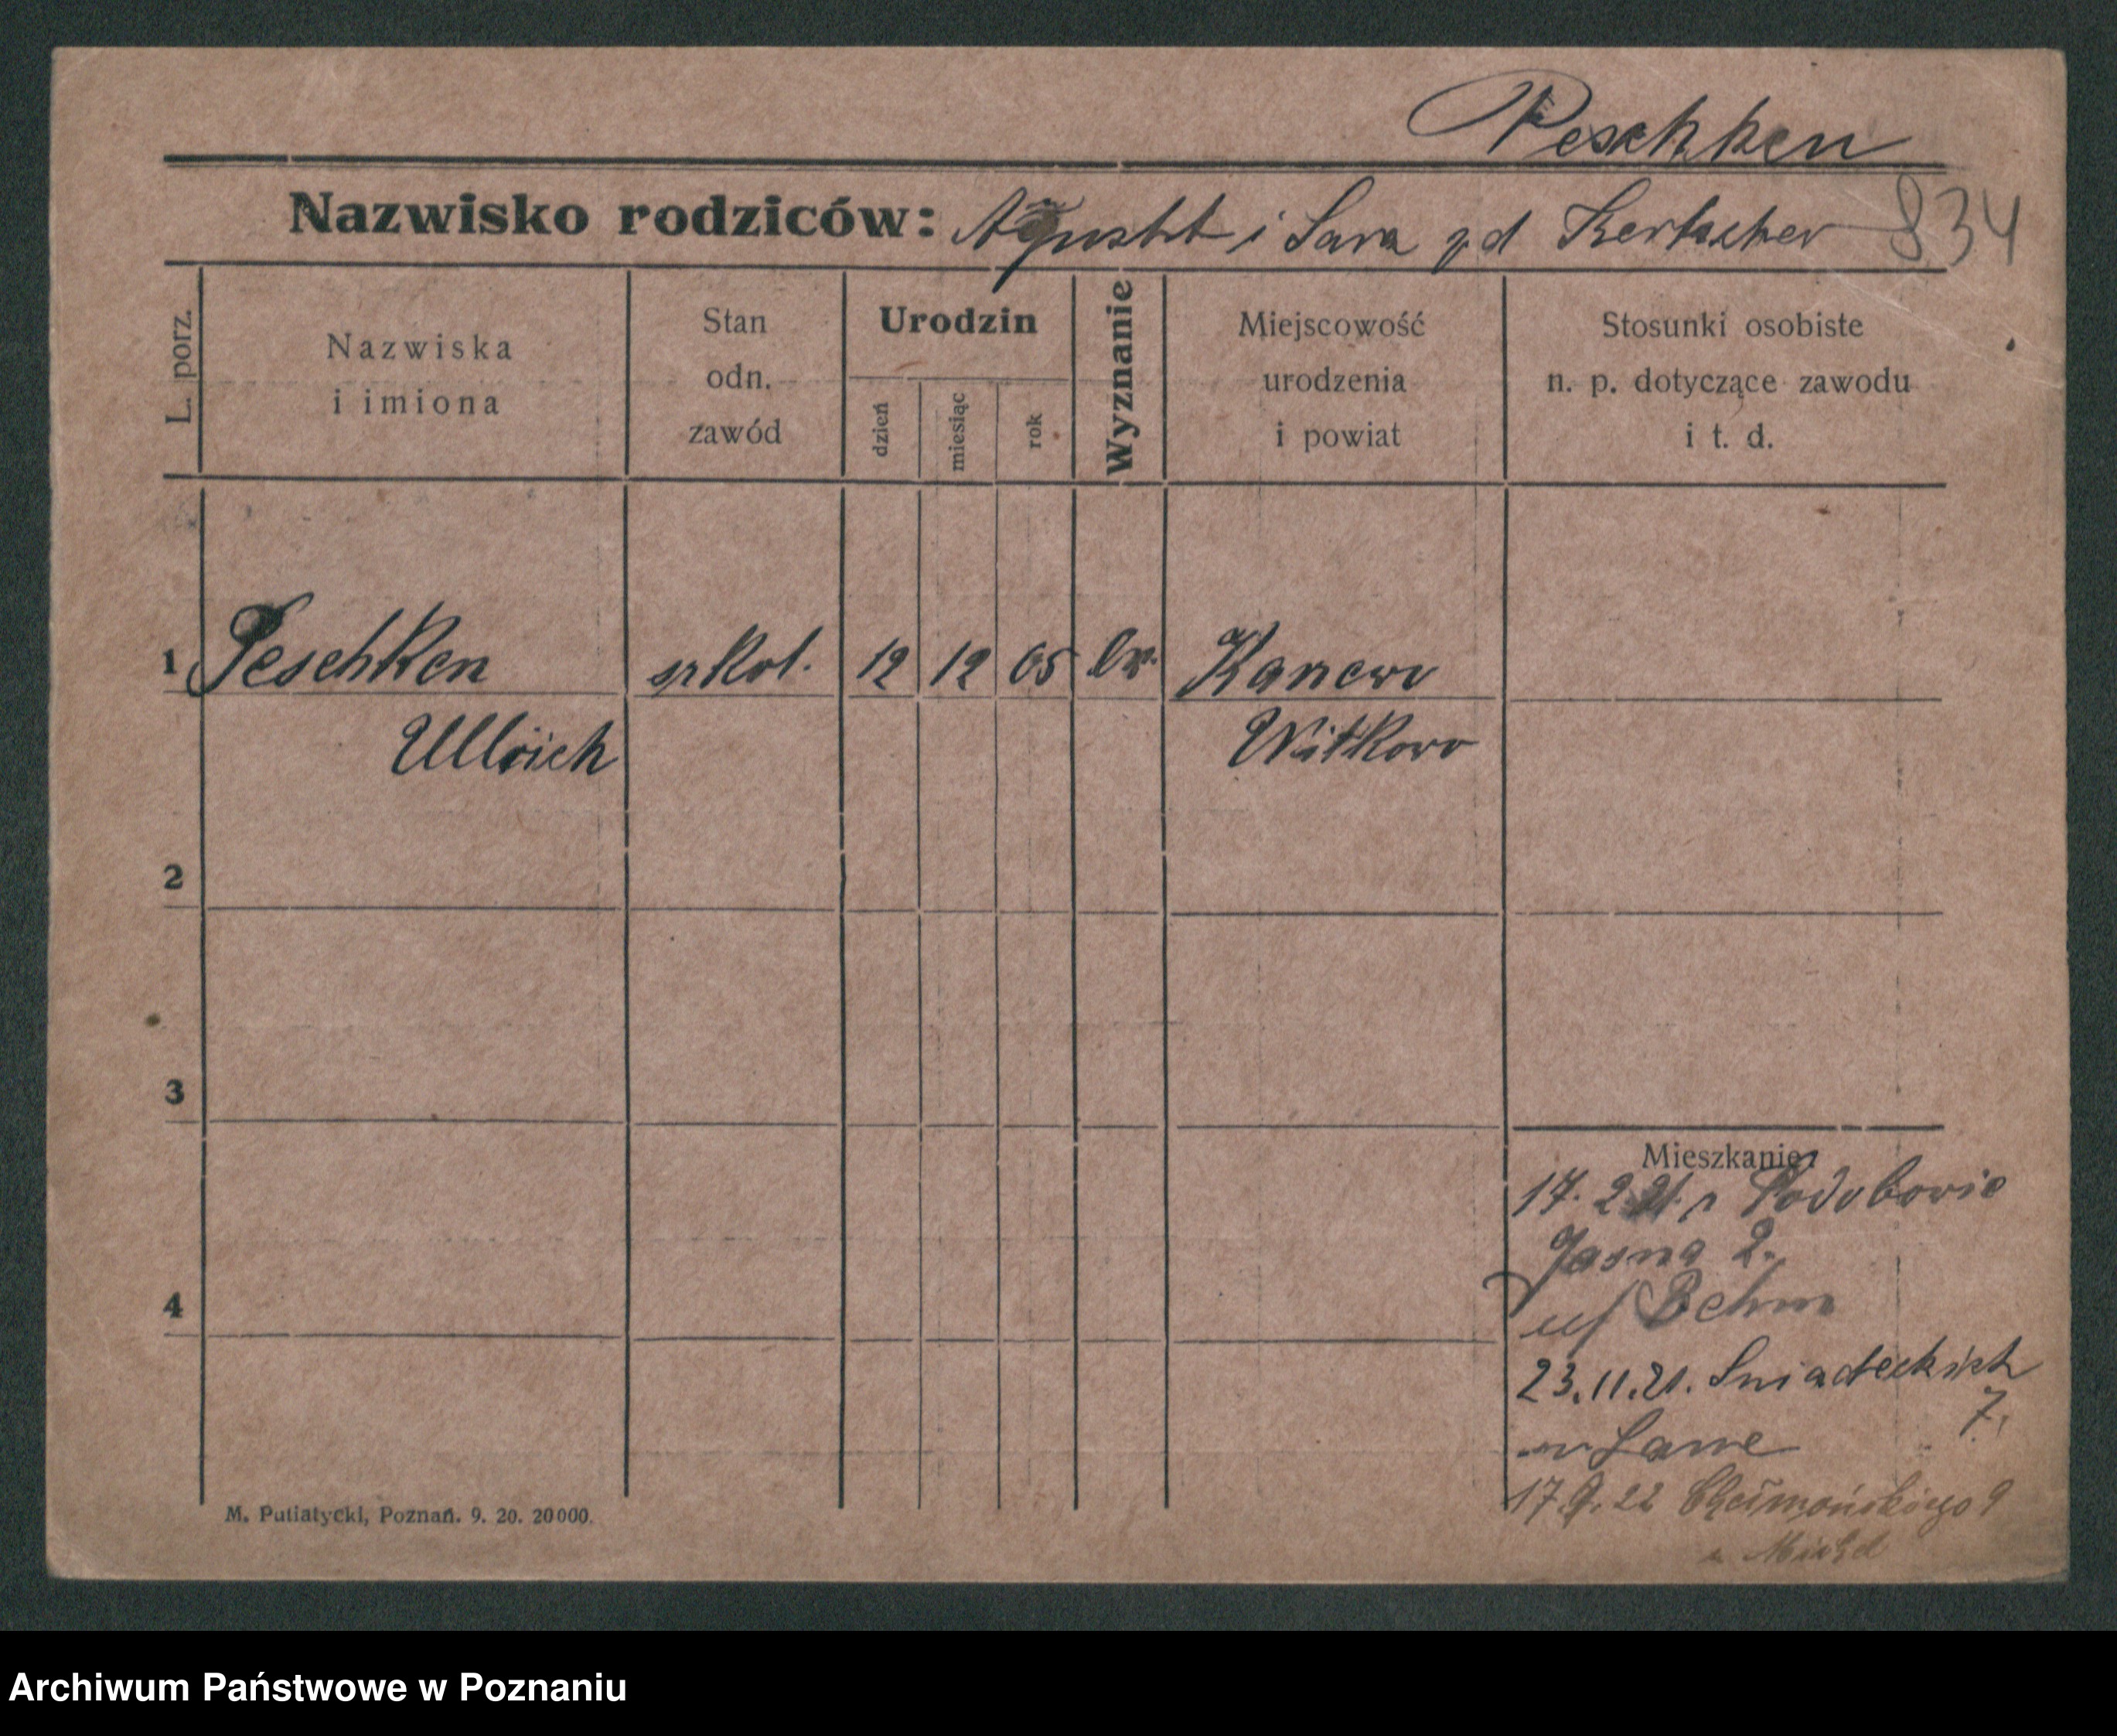 Peschken
Nazwisko rodziców: August i Sara zd Kertscher 834
L. porz.
Nazwiska i imiona
Stan odn. zawód
Urodzin
dzień miesiąc rok
Wyznanie
Miejscowość urodzenia i powiat
Stosunki osobiste n. p. dotyczące zawodu i t. d.
1 Peschken szkol. 12 12 05 Ew. Kanewo
Ullrich Witkowo
2
3
Mieszkanie:
17. 2 21. Podobowice
Jasna 2.
4
Behm
23.11.21. Sniadeckich
7.
17.9.22 Chełmońskiego 9
M. Putiatycki, Poznań. 9. 20. 20000.
Archiwum Państwowe w Poznaniu